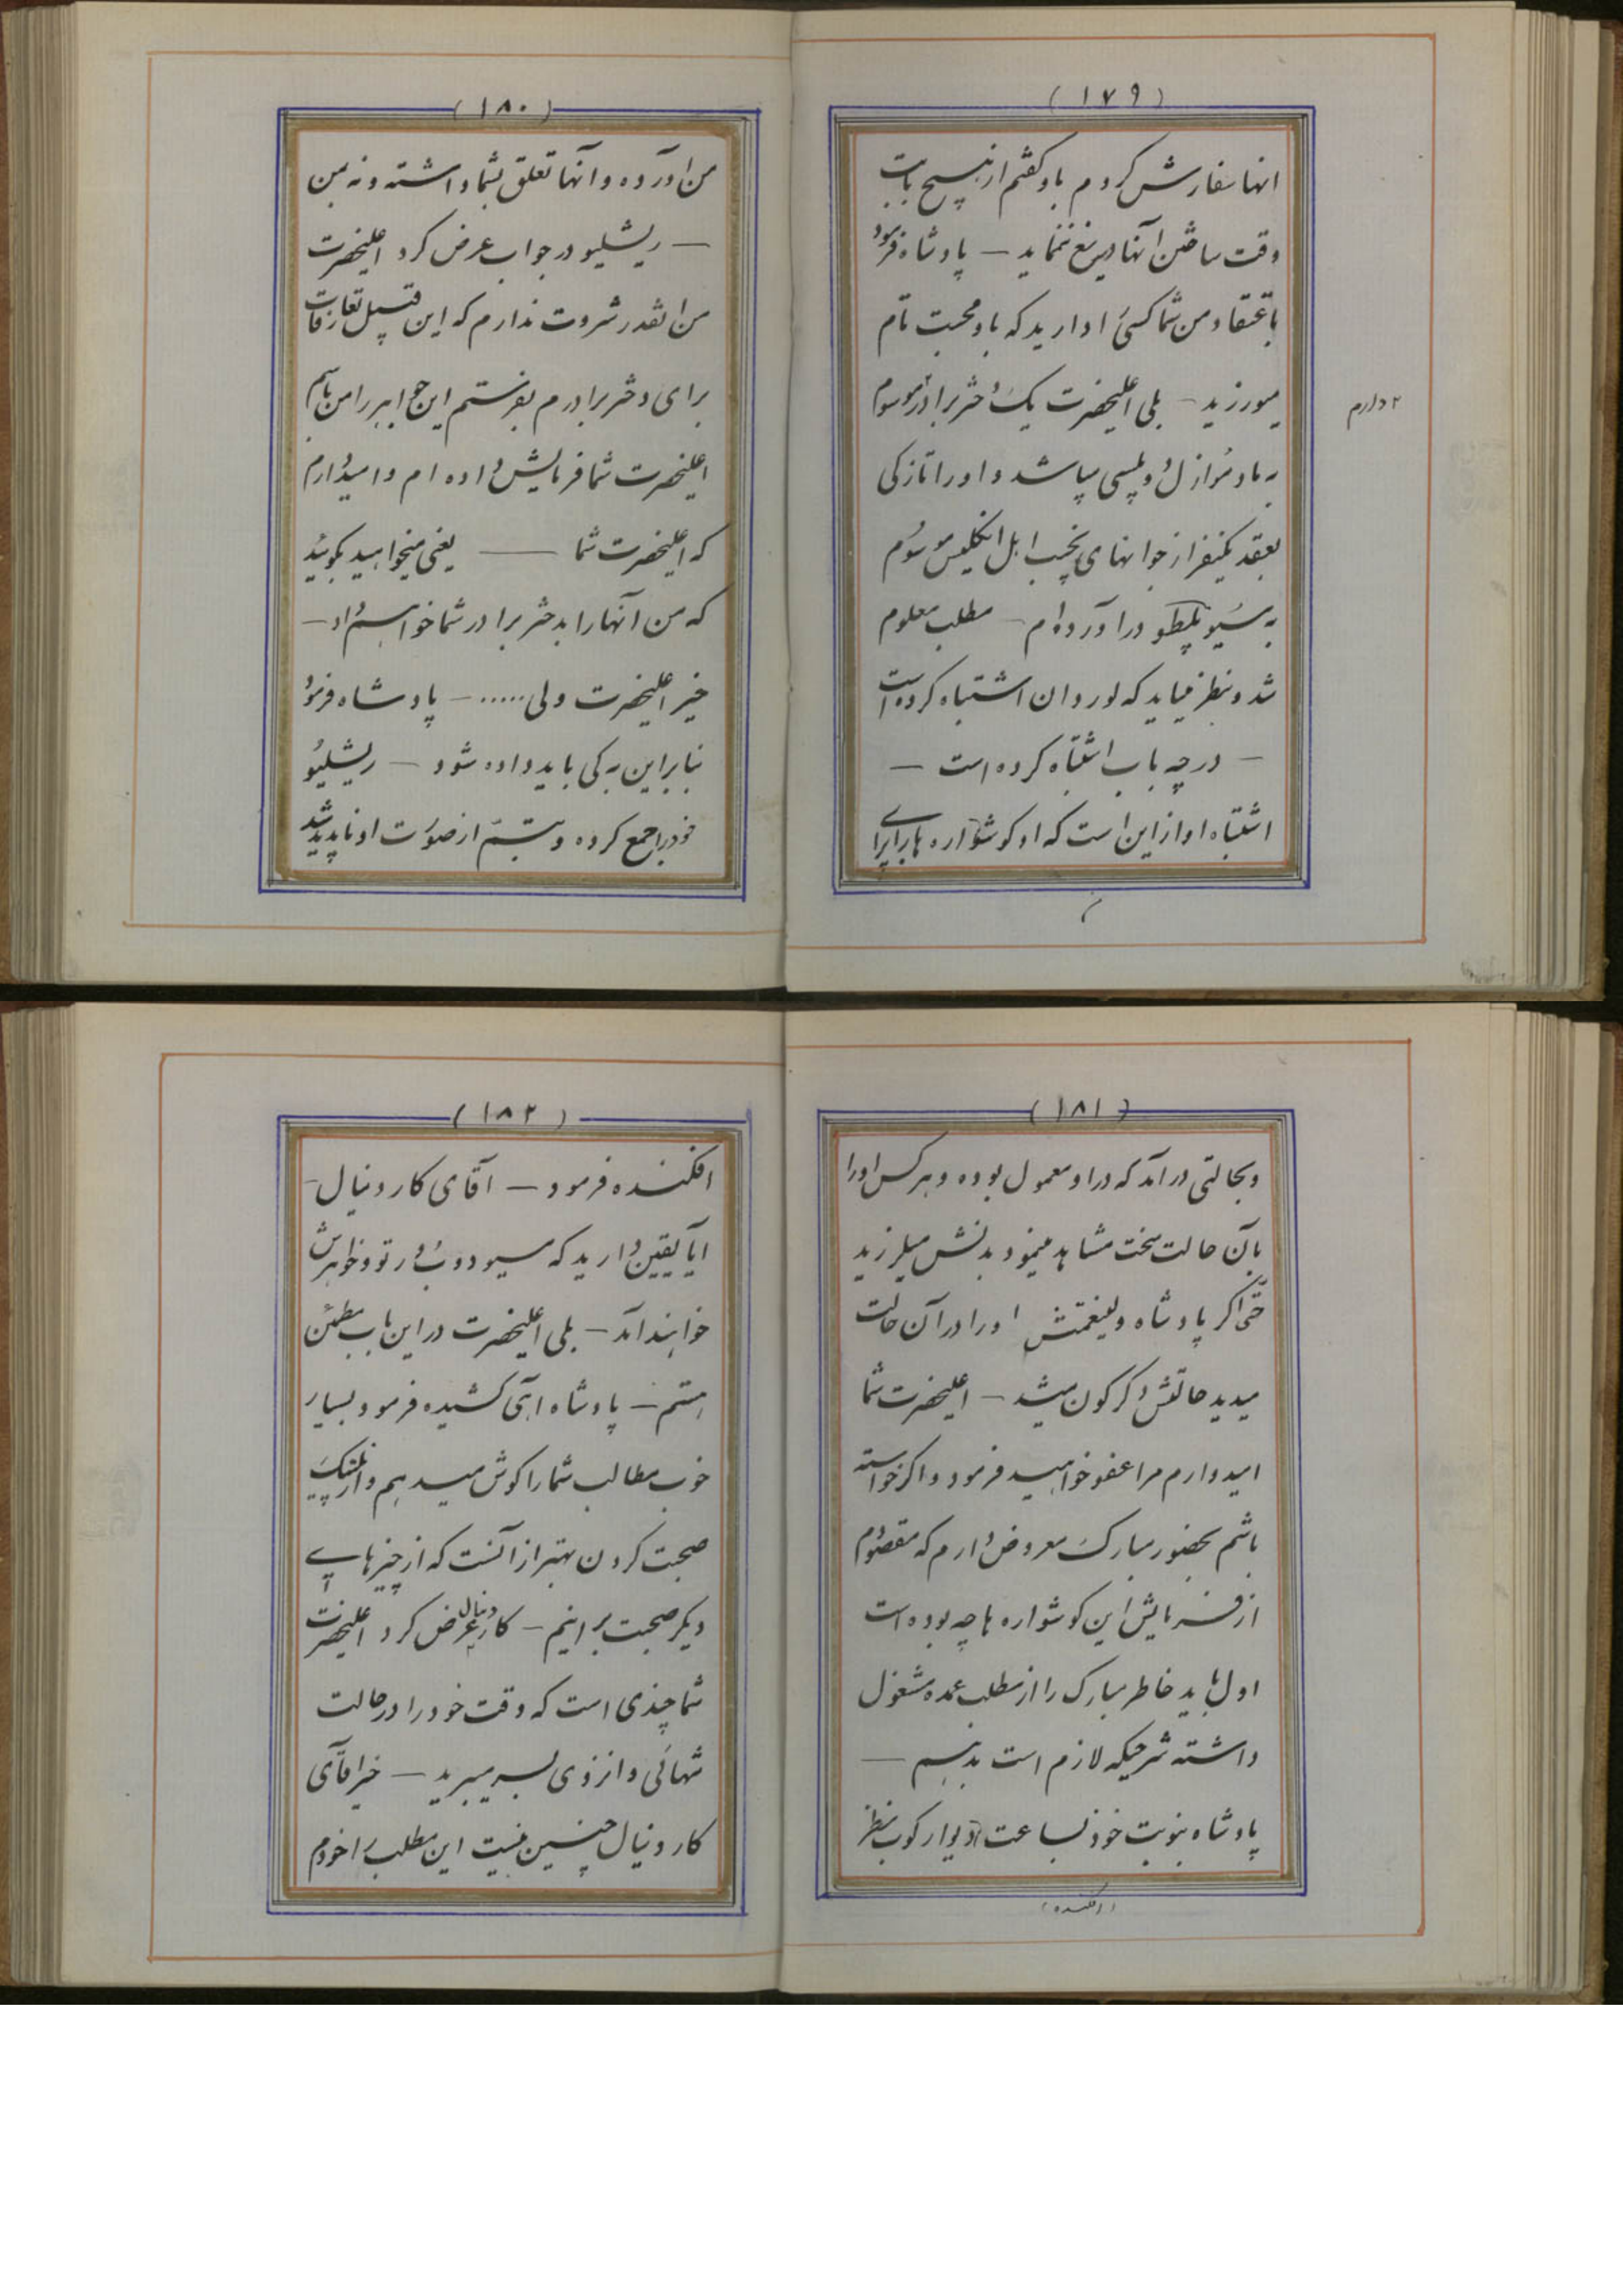 (۱۷۹)
انها سفارش کردم باو گفتم از هیچ بابت
وقت ساختن آنها دریغ ننماید — پادشاه فرمود
باعتقاد من شما کسی را دارید که باو محبت تام
میورزید — بلی اعلیحضرت یک دختر برادر موسوم
۲ دارم
به مادموازل دو پلسی میباشد و او را تازکی
بعقد یکنفر از جوانهای نجیب اهل انکلیس موسوم
به سیو درآورده‌ام — مطلب معلوم
شد و بنظر میاید که لوردان اشتباه کرده است
— در چه باب اشتباه کرده است —
اشتباه او از این است که او کوشواره ها را برای
(۱۸۰)
من آورده و آنها تعلق بشما داشته و نه من
— ریشلیو در جواب عرض کرد اعلیحضرت
من انقدر ثروت ندارم که این قبیل تعارفات
برای دختر برادرم بفرستم این جواهر را من باسم
اعلیحضرت شما فرمایش داده ام و امیدوارم
که اعلیحضرت شما — یعنی میخواهید بکوئید
که من آنها را بدختر برادر شما خواهم داد —
خیر اعلیحضرت ولی ..... — پادشاه فرمود
بنابراین به کی باید داده شود — ریشلیو
خود را جمع کرده و تبسم از صورت او ناپدید شد
(۱۸۱)
و بحالتی درآمد که در او معمول بوده و هر کس او را
بآن حالت سخت مشاهده مینمود بدنش میلرزید
حتی اکر پادشاه ولینعمتش او را در آن حالت
میدید حالتش دکرکون میشد — اعلیحضرت شما
امیدوارم مرا عفو خواهید فرمود و اکر خواسته
باشم بحضور مبارک معروض دارم که مقصودم
از فرمایش این کوشواره ها چه بوده است
اول باید خاطر مبارک را از مطلب عمده مشغول
داشته شرحیکه لازم است بدهم —
پادشاه بنوبت خود بساعت دیوارکوب نظر
(افکنده)
(۱۸۲)
افکنده فرمود — آقای کاردینال —
ایا یقین دارید که مسیو دوبورتو و خواهرش
خواهند آمد — بلی اعلیحضرت در این باب مطمئن
هستم — پادشاه آهی کشیده فرمود بسیار
خوب مطالب شما را کوش میدهم و از
صحبت کردن بهتر از آنست که از چیزهای
دیکر صحبت برانیم — کاردینال عرض کرد اعلیحضرت
شما چندی است که وقت خود را در حالت
تنهائی و انزوی بسر میبرید — خیر اقای
کاردینال چنین نیست این مطلب را خودم